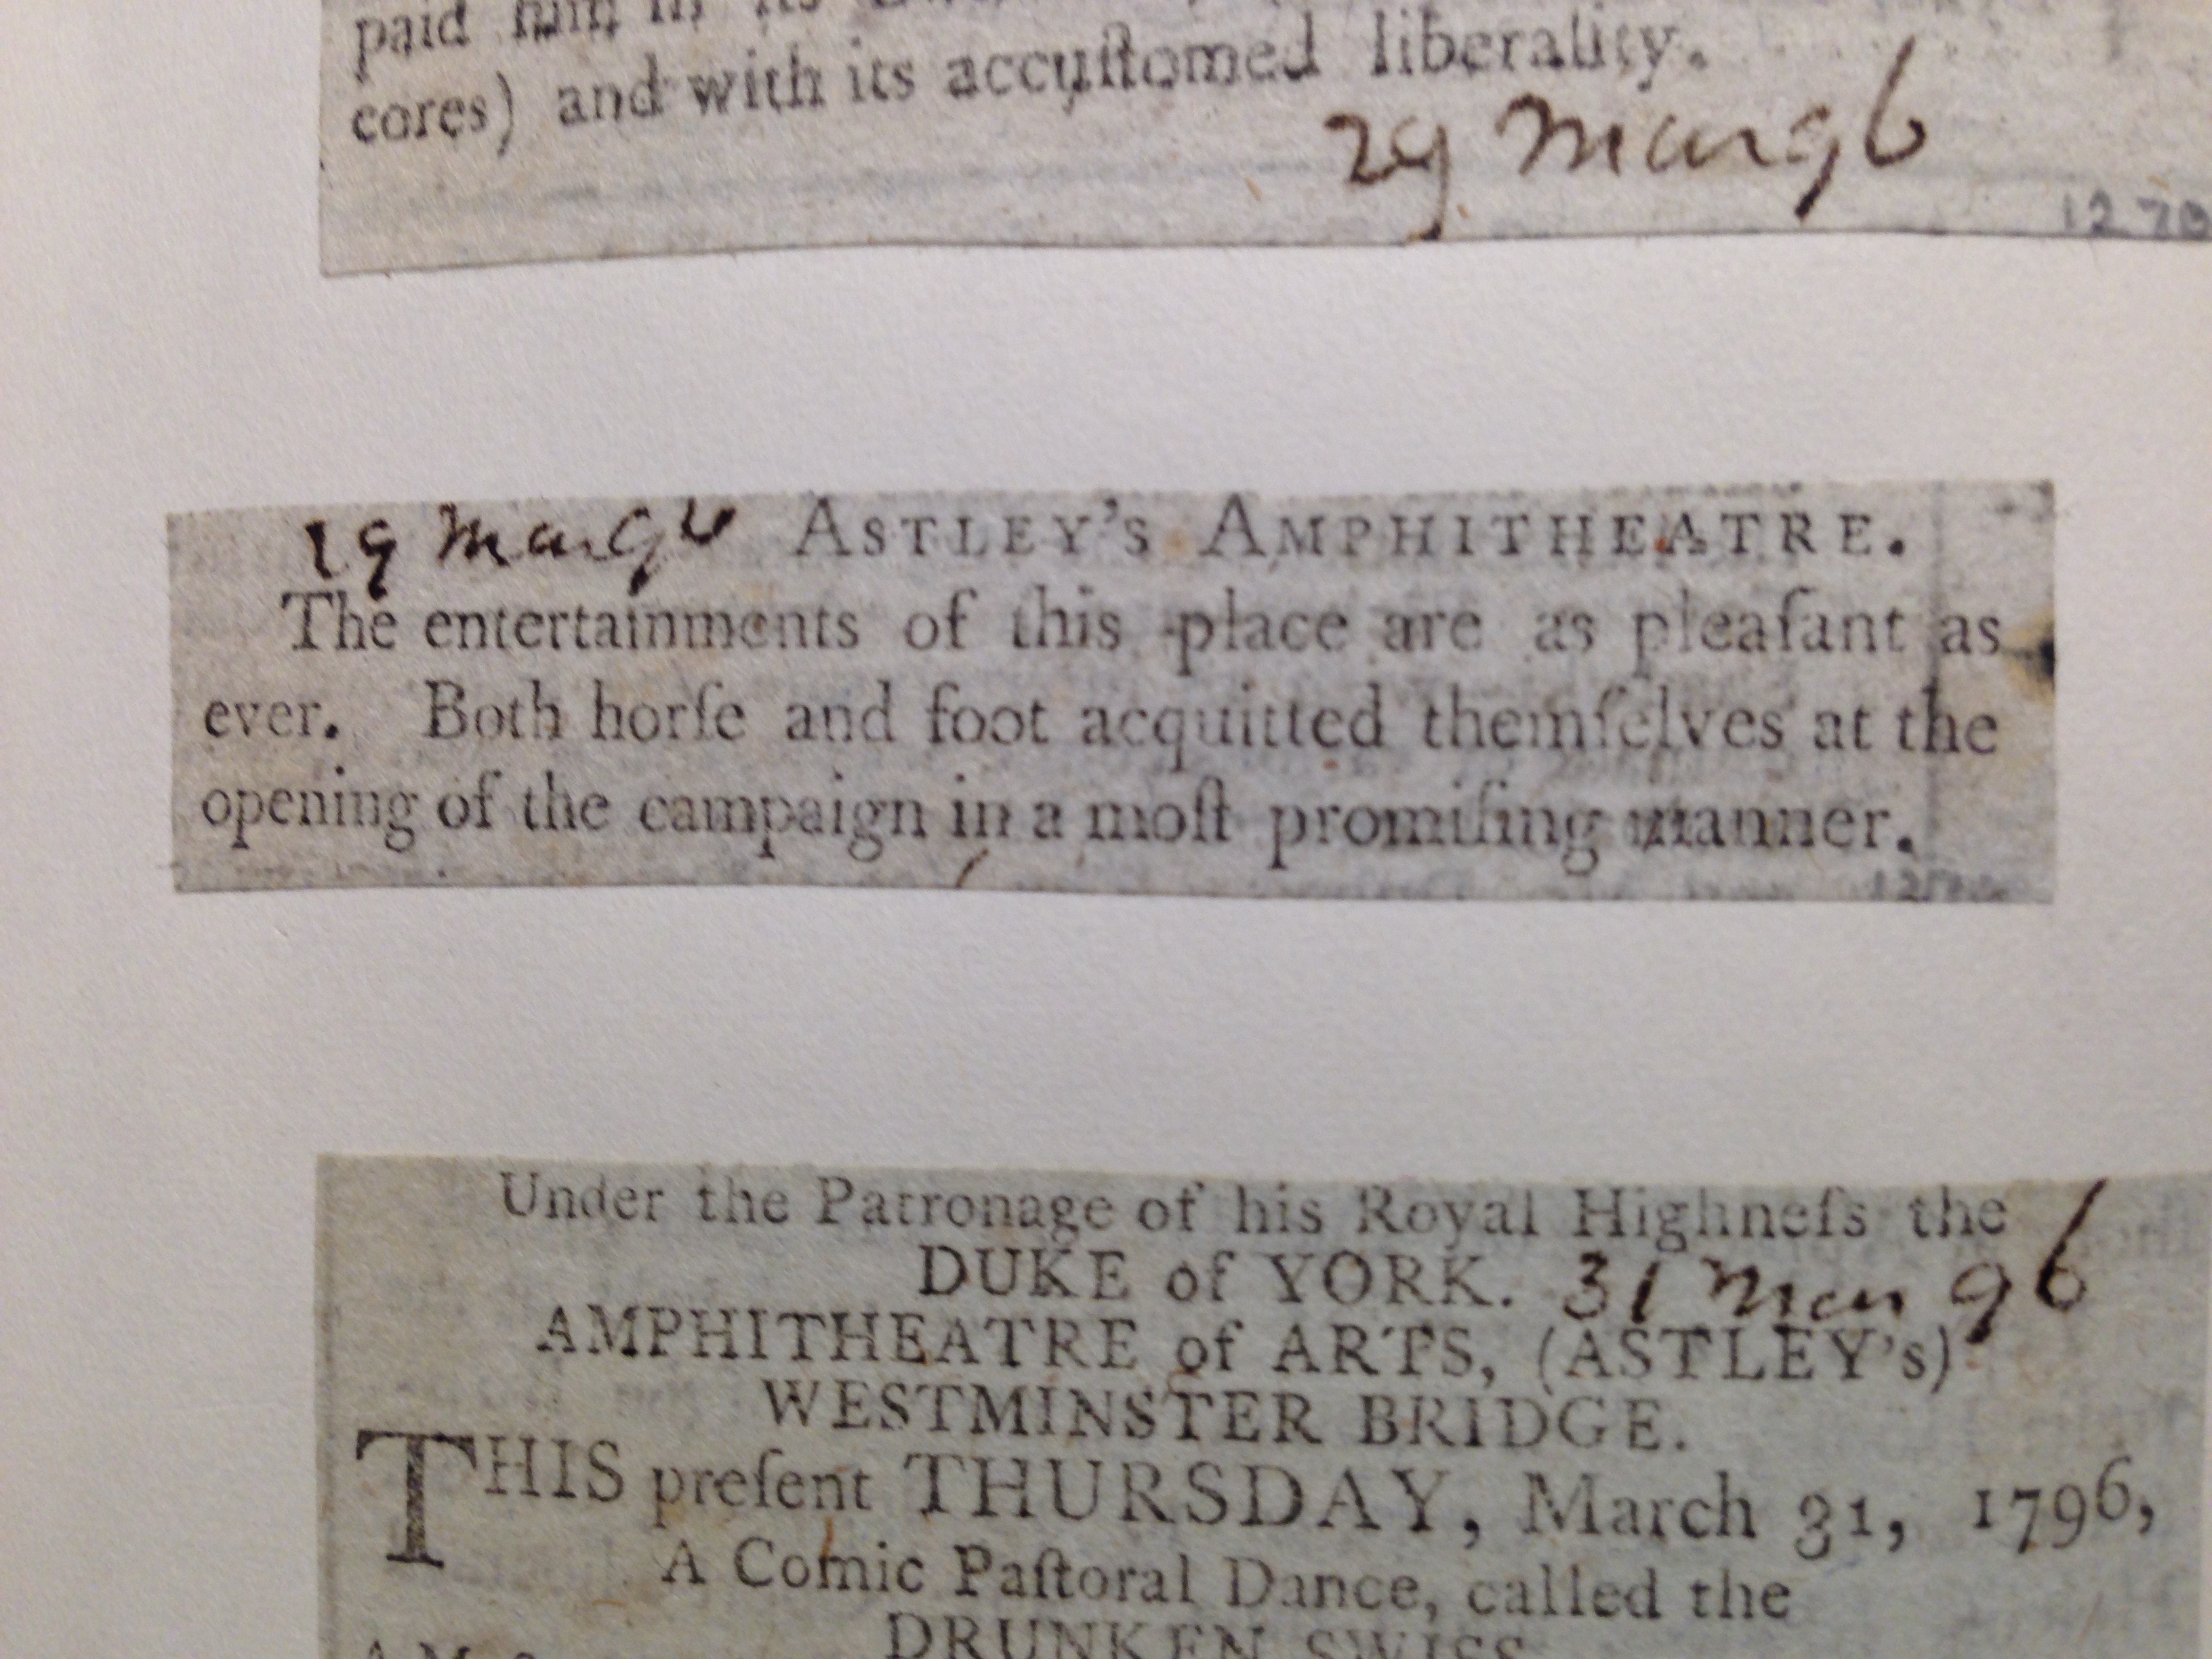 paid him in its
cores) and with its accuſtomed liberality.
29 Mar 96
1270
29 Mar 96 ASTLEY's AMPHITHEATRE.
The entertainments of this place are as pleaſant as
ever. Both horſe and foot acquitted themſelves at the
opening of the campaign in a moſt promiſing manner.
Under the Patronage of his Royal Highneſs the
DUKE of YORK. 31 Mar 96
AMPHITHEATRE of ARTS, (ASTLEY's)
WESTMINSTER BRIDGE.
THIS preſent THURSDAY, March 31, 1796,
A Comic Paſtoral Dance, called the
DRUNKEN SWISS